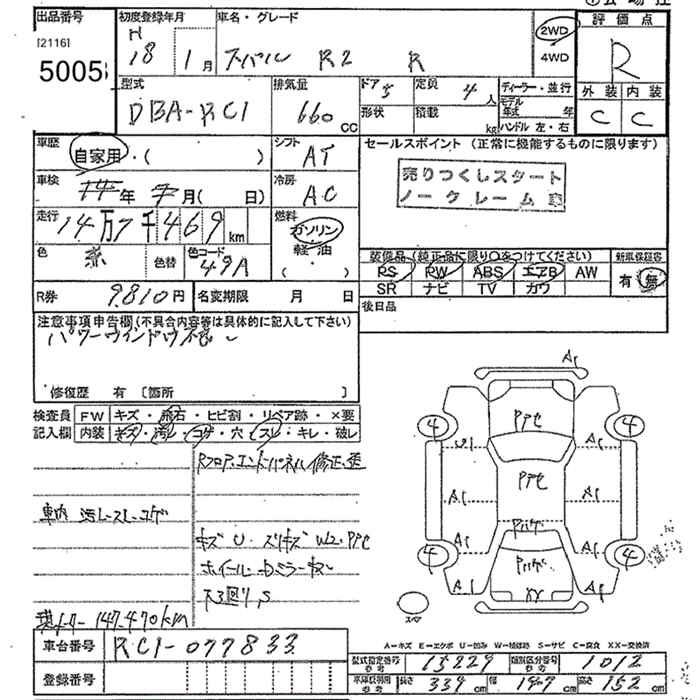 出品番号 初度登録年月 車名・グレード 2WD 4WD 評価点
[2116]
5005
H 18年 1月 スバル R2 R
R
型式 排気量 ドア 5 定員 4人 ディーラー・並行
DBA-RC1 660 CC 形状 積載 kg モデル年式 年 ハンドル 左・右
外装 内装
C C
車歴 自家用・( ) シフト AT
セールスポイント (正常に機能するものに限ります)
売りつくしスタート
ノークレーム車
車検 年 月( 日) 冷房 AC
走行 14万7千469km 燃料 ガソリン 軽油 ( ・ )
色 赤 色替 色コード 49A
装備品(純正品に限り○をつけてください) 新車保証書
PS PW ABS エアB AW 有・無
SR ナビ TV カワ
R券 9810円 名変期限 月 日
後日品
注意事項申告欄(不具合内容等は具体的に記入して下さい)
パワーウインドウ不良
修復歴 有 [箇所 ]
検査員 FW キズ・飛石・ヒビ割・リペア跡・×要
記入欄 内装 キズ・汚レ・コゲ・穴・スレ・キレ・破レ
Rフロア、エンドパネル修正、歪
車内 汚レ スレ コゲ
キズ U
147.470km
車台番号 RC1-077833
登録番号
A1
4 4
U1 A1
A1 A1
A1 A1
A1 A1
4 4
XX
スペア
A-キズ E-エクボ U-凹み W-補修跡 S-サビ C-腐食 XX-交換済
型式指定番号 参考 15229 類別区分番号 参考 1012
参考 長さ 339cm 幅 147cm 高さ 152cm